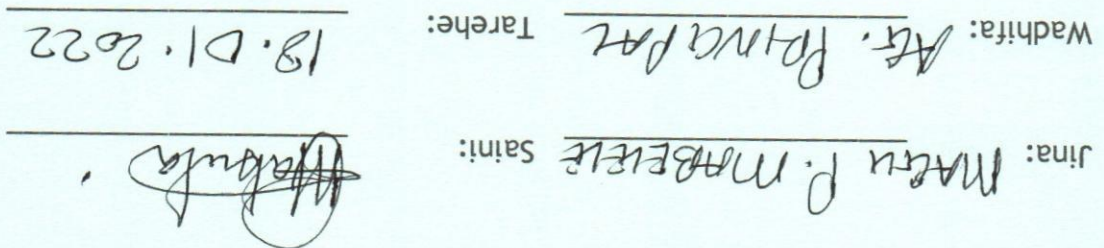 Jina: MAGU P. MABELELE Saini:
Wadhifa: AG. PRINCIPAL Tarehe: 18.01.2022